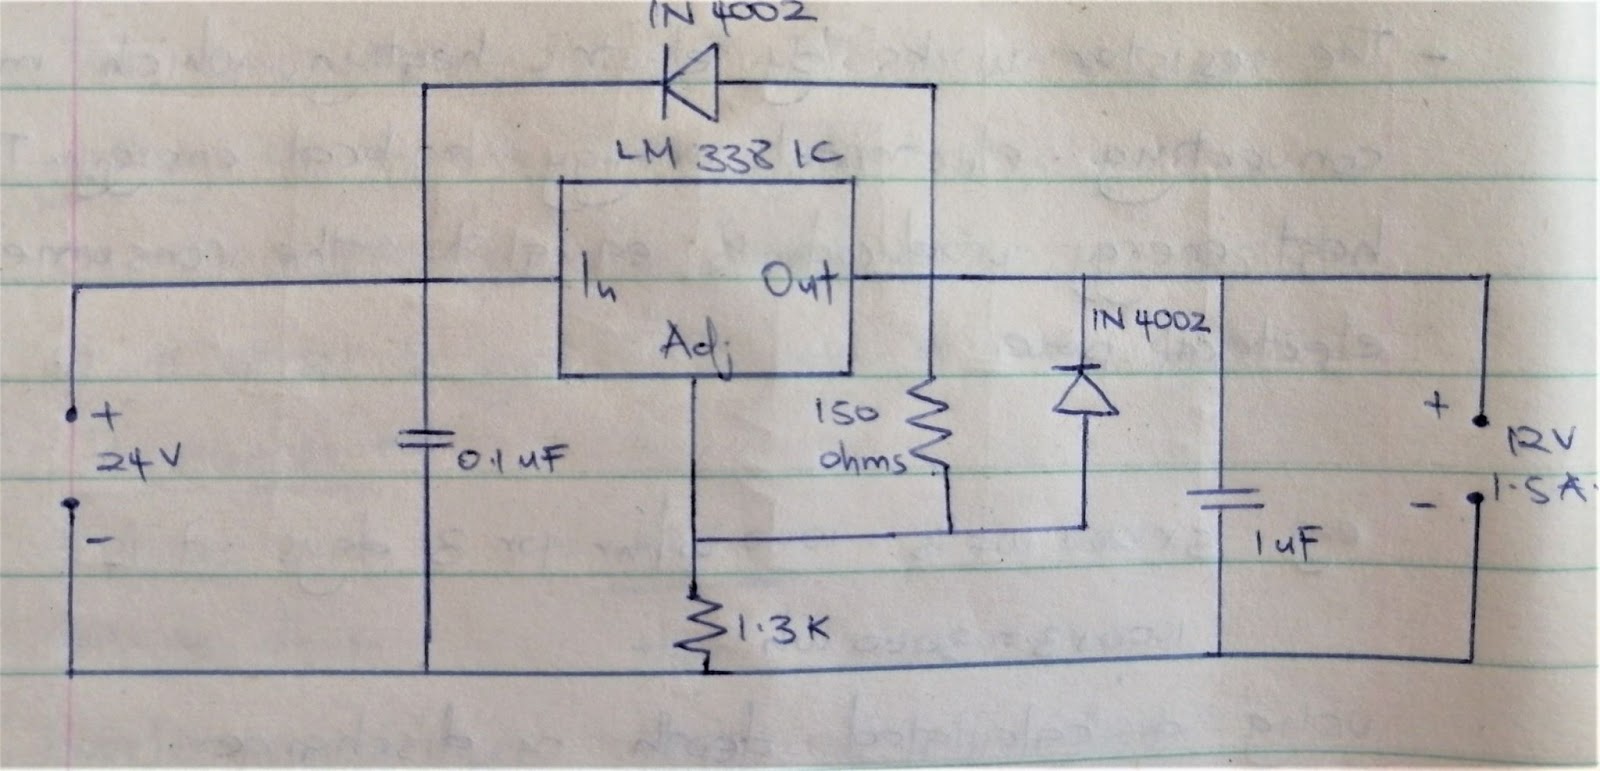 IN 4002
LM 338 IC
In
Out
Adj
IN 4002
+
24V
-
0.1uF
150
ohms
1uF
+
12V
1.5A.
-
1.3K